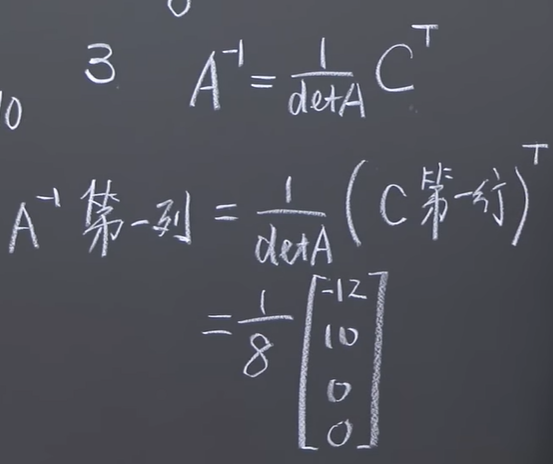 0
3 A⁻¹ = 1/detA Cᵀ
10
A⁻¹ 第一列 = 1/detA (C 第一行)ᵀ
= 1/8 [-12
10
0
0]